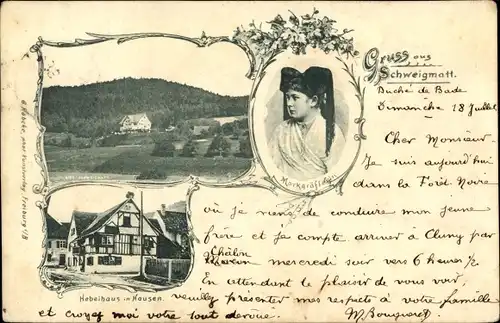 Gruss aus
Schweigmatt.
Duché de Bade
Dimanche 18 Juillet
Cher Monsieur
Je suis aujourd'hui
dans la Forêt Noire
où je viens de conduire mon jeune
frère et je compte arriver à Cluny par
Châlon
mercredi soir vers 6 heures 1/2
En attendant le plaisir de vous voir,
veuillez présenter mes respects à votre famille
et croyez moi votre tout dévoué.
Markgräflerin
Hebelhaus in Hausen.
Freiburg i/B